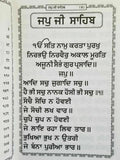 ਜਪੁ ਜੀ ਸਾਹਿਬ
ੴ ਸਤਿ ਨਾਮੁ ਕਰਤਾ ਪੁਰਖੁ
ਨਿਰਭਉ ਨਿਰਵੈਰੁ ਅਕਾਲ ਮੂਰਤਿ
ਅਜੂਨੀ ਸੈਭੰ ਗੁਰਪ੍ਰਸਾਦਿ
॥ ਜਪੁ ॥
ਆਦਿ ਸਚੁ ਜੁਗਾਦਿ ਸਚੁ ॥
ਹੈ ਭੀ ਸਚੁ ਨਾਨਕ ਹੋਸੀ ਭੀ ਸਚੁ ॥੧॥
ਸੋਚੈ ਸੋਚਿ ਨ ਹੋਵਈ
ਜੇ ਸੋਚੀ ਲਖ ਵਾਰ ॥
ਚੁਪੈ ਚੁਪ ਨ ਹੋਵਈ
ਜੇ ਲਾਇ ਰਹਾ ਲਿਵ ਤਾਰ ॥
ਭੁਖਿਆ ਭੁਖ ਨ ਉਤਰੀ
ਜੇ ਬੰਨਾ ਪੁਰੀਆ ਭਾਰ ॥